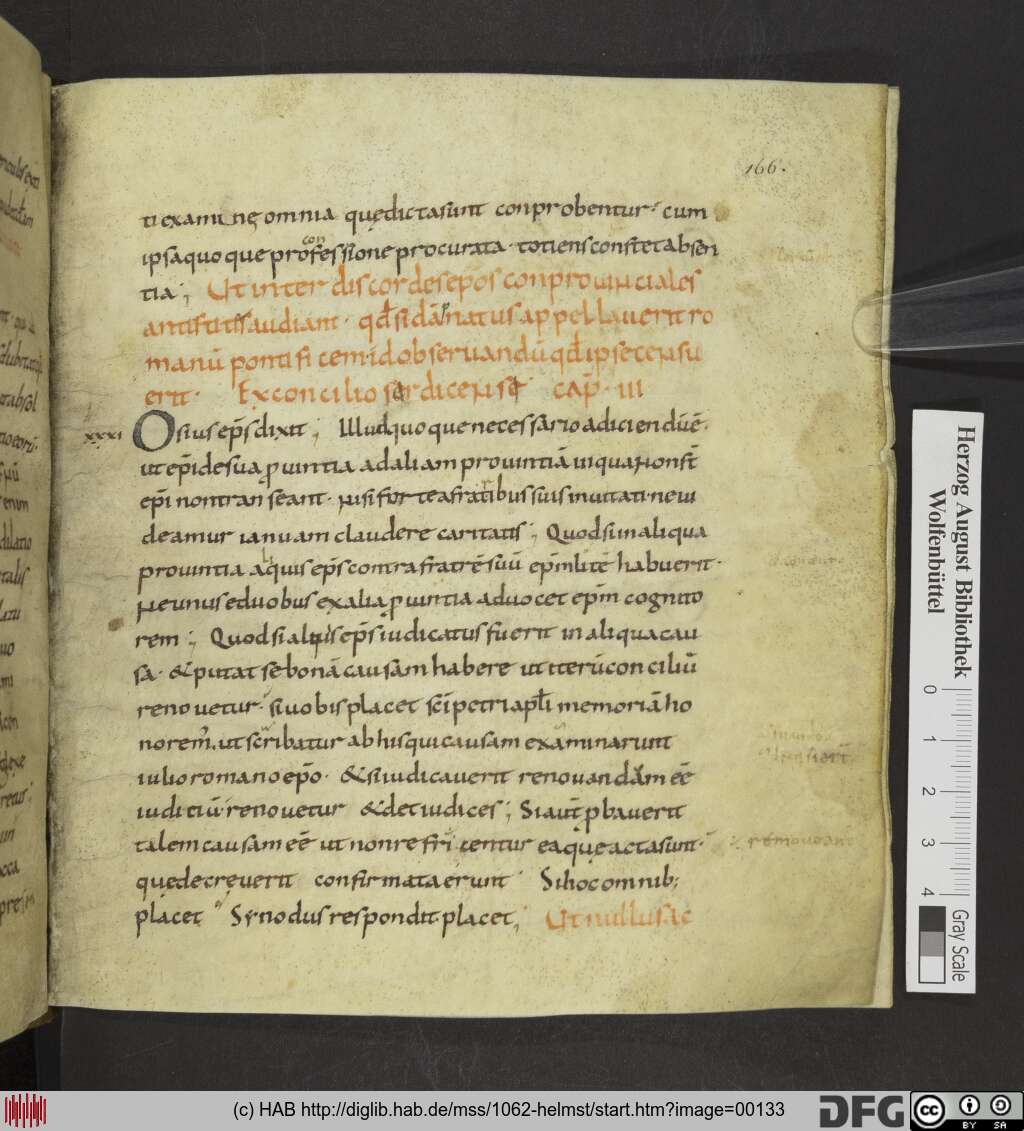 166.
ti examine omnia quę dicta sunt conprobentur· cum
ipsa quoque professione procurata· totiens constet absen
con
tia; Ut inter discordes ep̄os conprouinciales
antistites audiant· qđ si dānatus appellauerit ro
manū pontificem· id obseruandū qđ ipse censu
erit· Ex concilio serdicense cap̄· III
XXXI
Osius ep̄s dixit; Illud quoque necessario adiciendū ē·
ut ep̄i de sua ꝓuintia ad aliam prouintiā in qua non s̄t
ep̄i non transeant· nisi forte a fratribus suis inuitati· ne ui
deamur ianuam claudere caritatis; Quod si in aliqua
prouintia aliquis ep̄s contra fratrē suū ep̄m litē habuerit·
ne unus e duobus ex alia ꝓuintia aduocet ep̄m cognito
rem; Quod si aliquis ep̄s iudicatus fuerit in aliqua cau
sa· & putat se bonā causam habere ut iterū conciliū
renouetur· si uobis placet sc̄i petri apl̄i memoriā ho
noremꝰ· ut scribatur ab his qui causam examinarunt
iulio romano ep̄o· & si iudicauerit renouandam eē
iuditiū renouetur & det iudices; Si aut̄ ꝓbauerit
talem causam eē ut non refricentur ea quę acta sunt·
quę decreuerit confirmata erunt· Si hoc omnib;
placet Synodus respondit placet; Ut nullus ac
removeant
Herzog August Bibliothek
Wolfenbüttel
0 1 2 3 4
Gray Scale
(c) HAB http://diglib.hab.de/mss/1062-helmst/start.htm?image=00133
DFG
cc BY SA